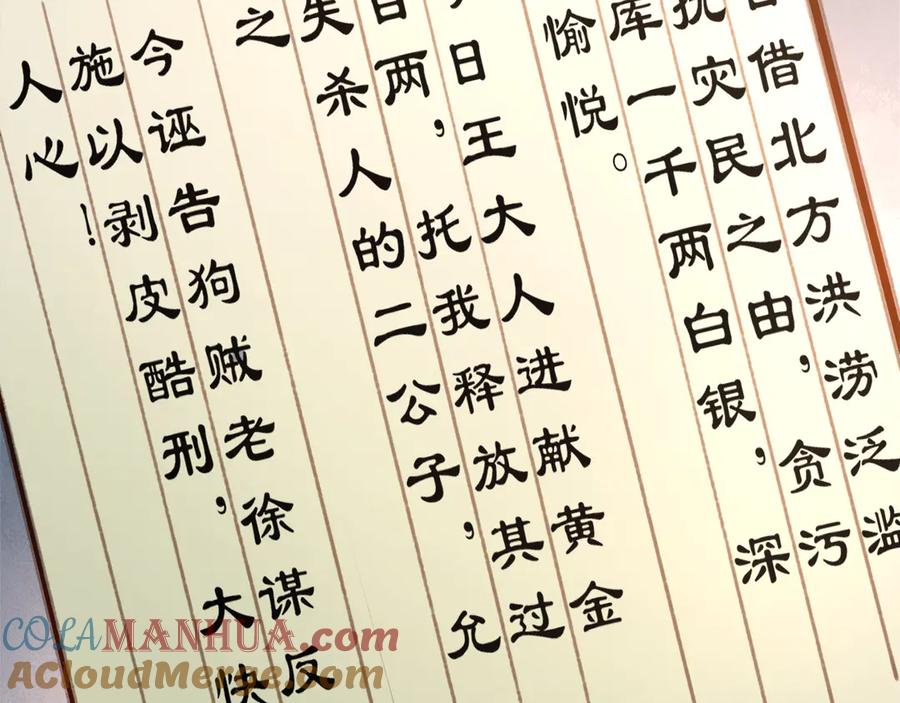 借北方洪涝泛滥
扰灾民之由，贪污
库一千两白银，深
愉悦。
日王大人进献黄金
百两，托我释放其过
失杀人的二公子，允
之
今诬告狗贼老徐谋反
施以剥皮酷刑，大快
人心！
COLAMANHUA.com
ACloudMerge.com